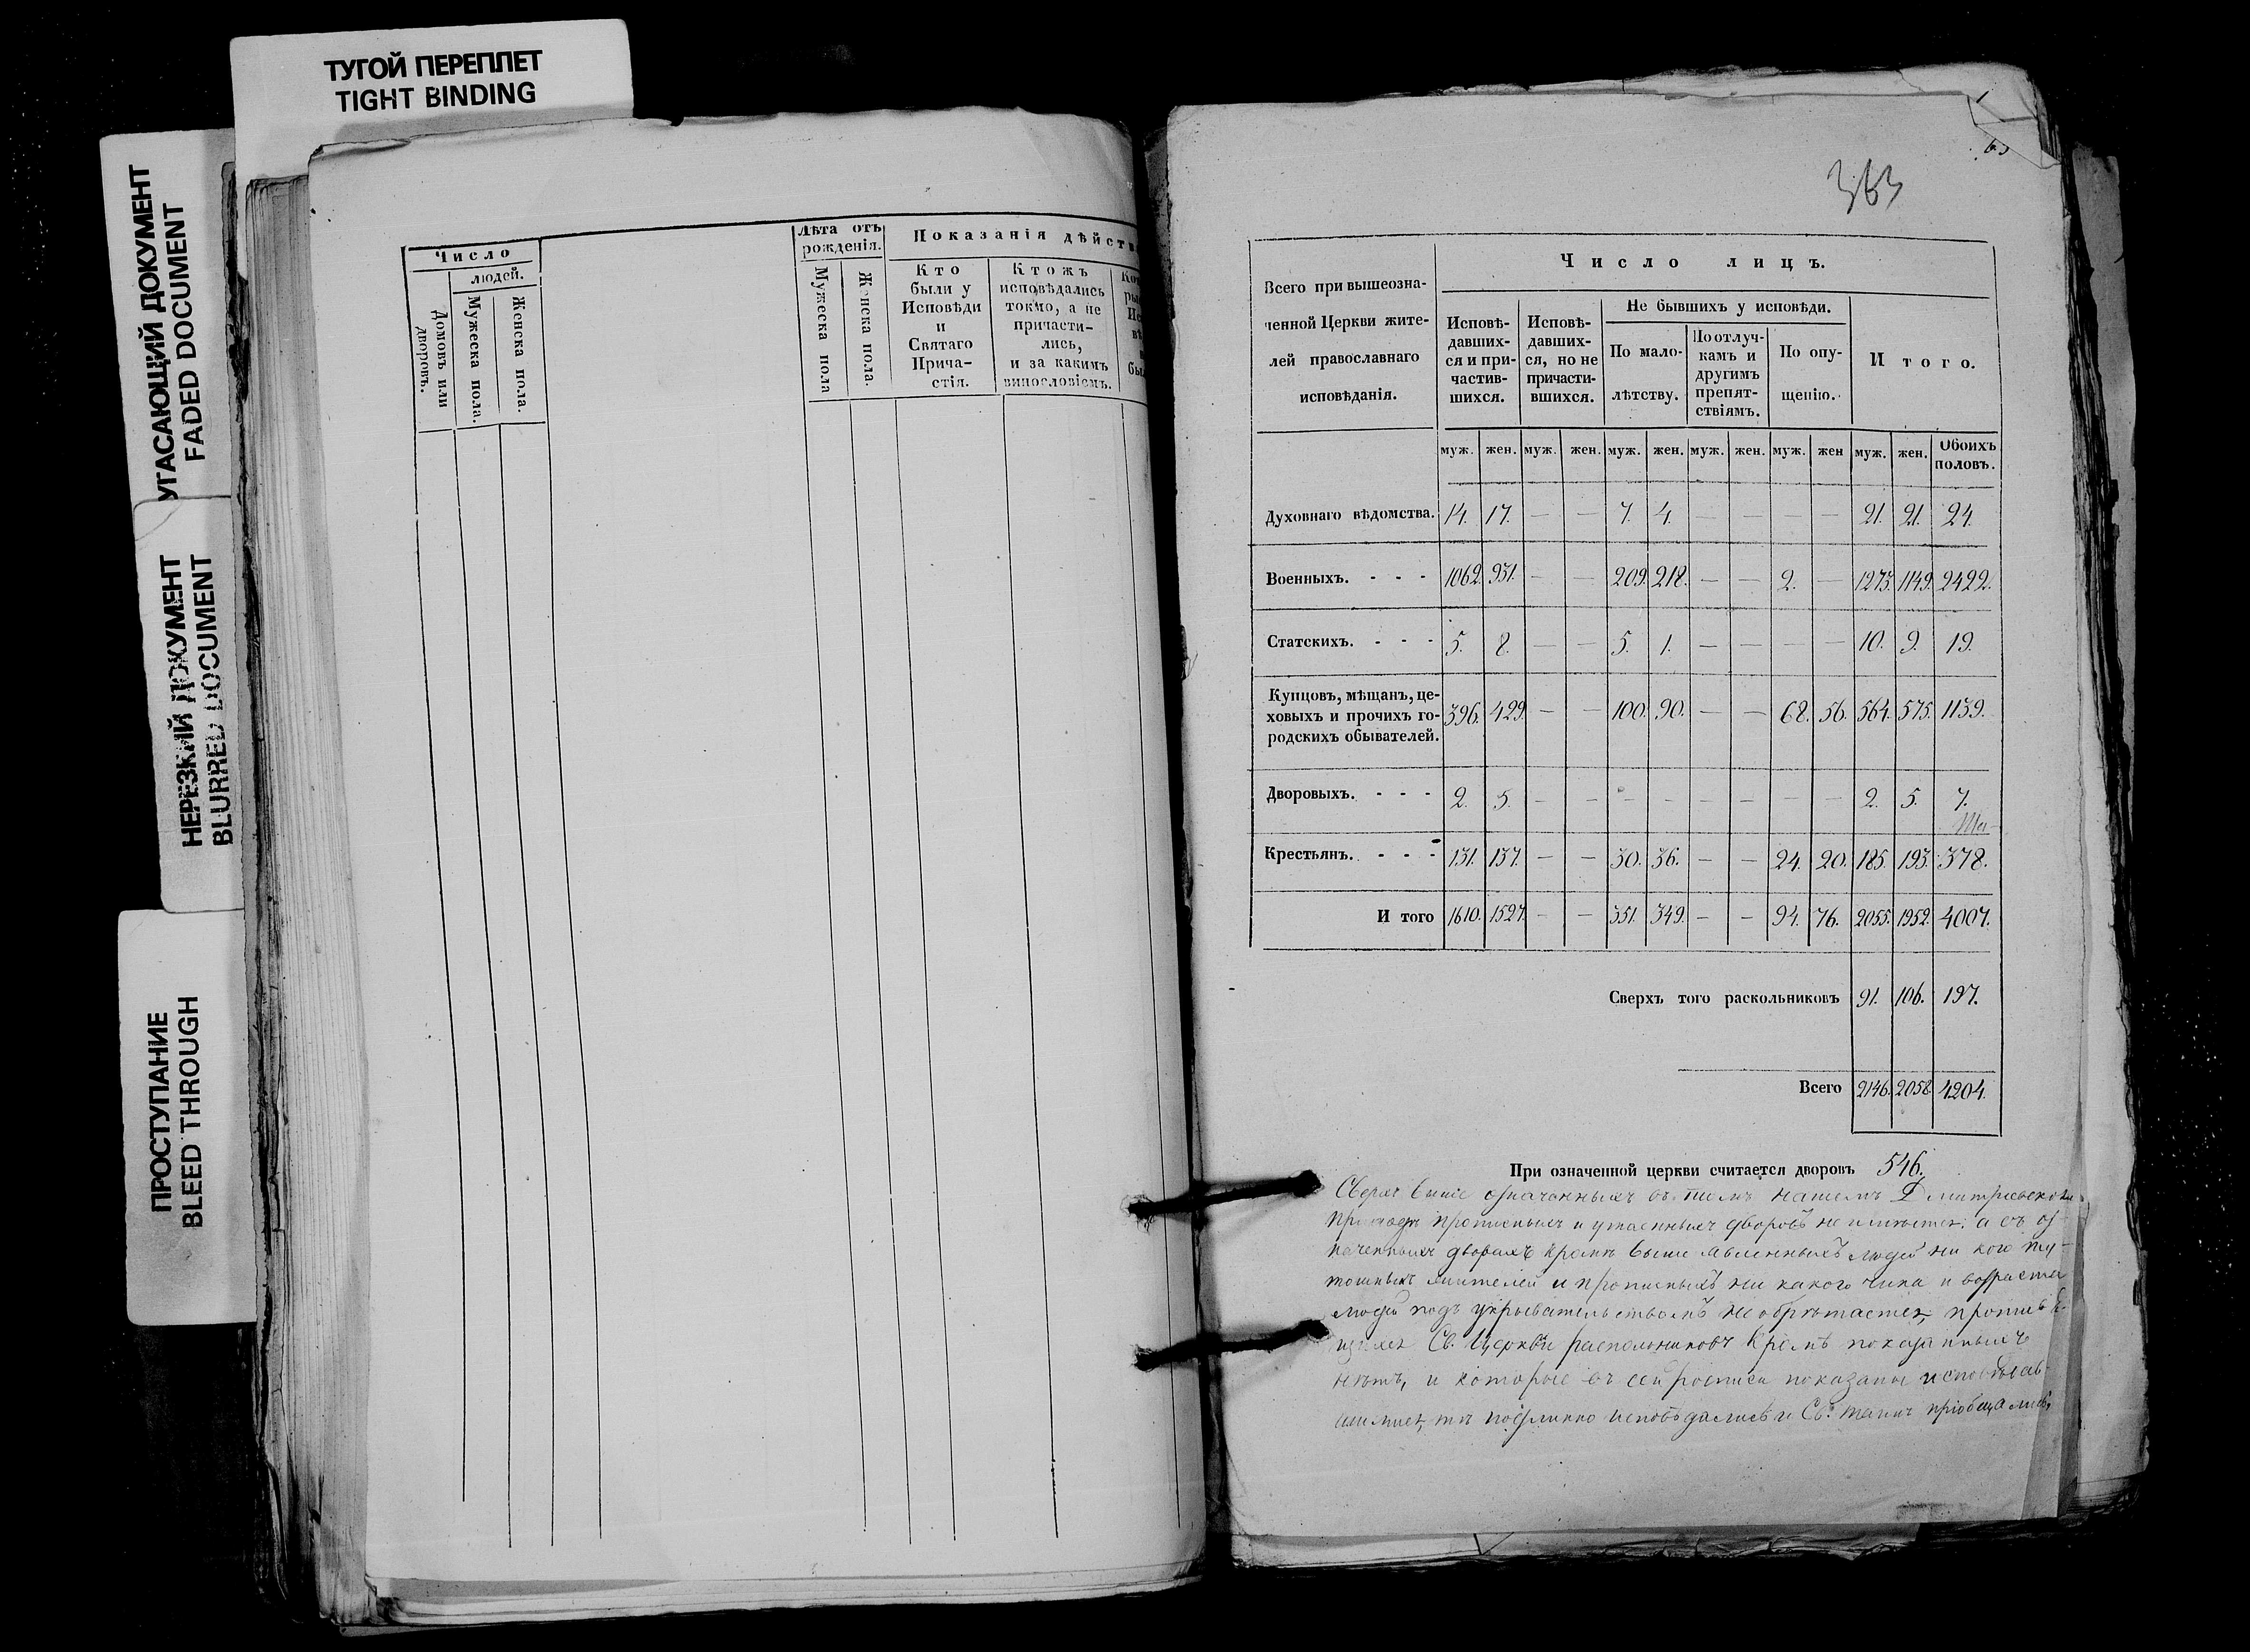 ТУГОЙ ПЕРЕПЛЕТ
TIGHT BINDING
УГАСАЮЩИЙ ДОКУМЕНТ
FADED DOCUMENT
НЕРЕЗКИЙ ДОКУМЕНТ
BLURRED DOCUMENT
ПРОСТУПАНИЕ
BLEED THROUGH
Число
людей.
Домовъ или дворовъ.
Мужеска пола.
Женска пола.
Лѣта отъ рожденія.
Мужеска пола
Женска пола.
Показанія дѣйств
Кто были у Исповѣди и Святаго Прича- стія.
Ктожъ исповѣдались токмо, а не причасти- лись, и за какимъ винословіемъ.
363
Всего при вышеозна-
ченной Церкви жите-
лей православнаго
исповѣданія.
Число лицъ.
Исповѣ- давших- ся и при- частив- шихся.
Исповѣ- давших- ся, но не причасти- вшихся.
Не бывшихъ у исповѣди.
По мало- лѣтству.
По отлуч- камъ и другимъ препят- ствіямъ.
По опу- щенію.
Итого.
муж. жен. муж. жен. муж. жен. муж. жен. муж. жен муж. жен. Обоихъ половъ.
Духовнаго вѣдомства. 14. 17. — — 7. 4. — — — — 21. 21. 24.
Военныхъ. - - - 1062. 931. — — 209. 218. — — 2. — 1273. 1149. 2422.
Статскихъ. - - - 5. 8. — — 5. 1. — — — — 10. 9. 19.
Купцовъ, мѣщанъ, це-
ховыхъ и прочихъ го- 396. 429. — — 100. 90. — — 68. 56. 564. 575. 1139.
родскихъ обывателей.
Дворовыхъ. - - - 2. 5. — — — — — — — — 2. 5. 7.
Крестьянъ. - - - 131. 137. — — 30. 36. — — 24. 20. 185. 193. 378.
И того 1610. 1527. — — 351. 349. — — 94. 76. 2055. 1952. 4007.
Сверхъ того раскольниковъ 91. 106. 197.
Всего 2146. 2058 4204.
При означенной церкви считается дворовъ 546.
Сверхъ выше означенныхъ въ семъ нашемъ Дмитріевскомъ
приходѣ прописныхъ и утаенныхъ дворовъ не имѣется. а въ оз-
наченныхъ дворахъ кромѣ выше явленныхъ людей ни кого ту-
тошныхъ жителей и прописныхъ ни какого чина и возраста
людей подъ укрывательствомъ не обрѣтается,
Св. Церкви раскольниковъ кромѣ показанныхъ
нѣтъ, и которые въ сей росписи показаны исповѣдав-
шимися, тѣ подлинно исповѣдались и Св. таинъ пріобщались,